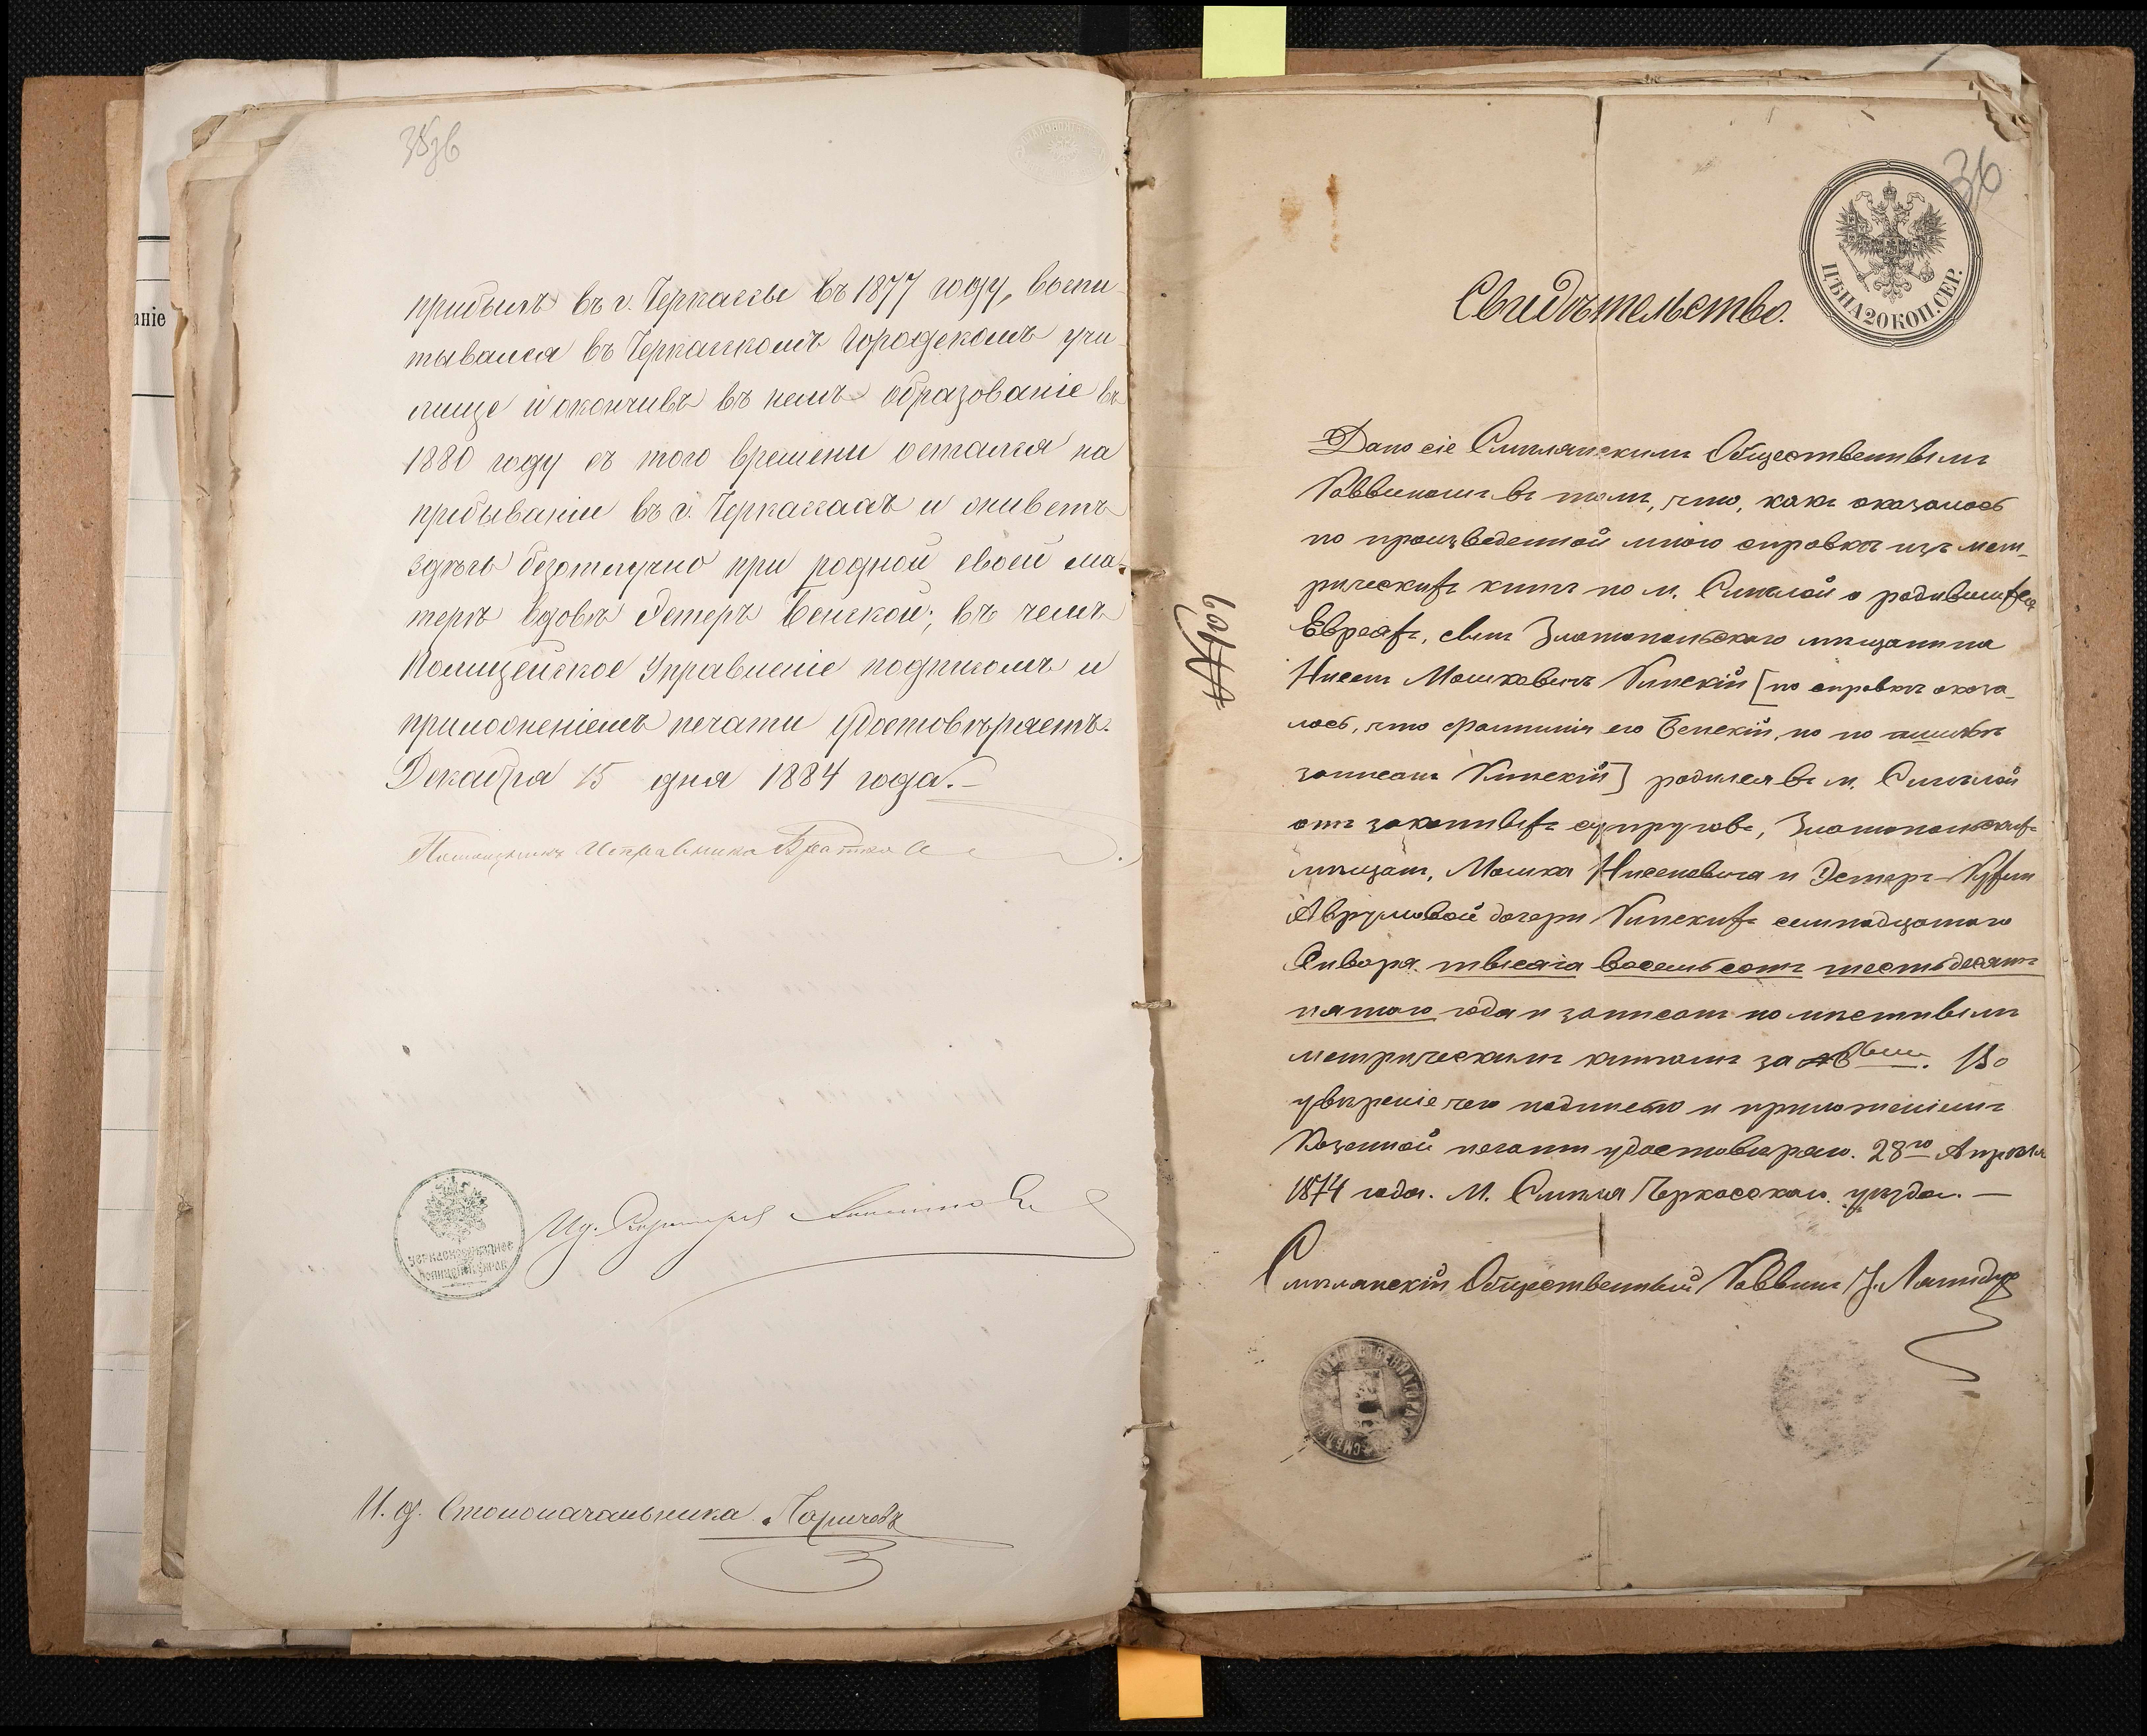 аніе
36
прибылъ въ г. Черкассы въ 1877 году, воспи
тывался въ Черкасскомъ Городскомъ учи
лище и окончивъ въ немъ образованіе въ
1880 году съ того времени остался на
прибываніи въ г. Черкассахъ и живетъ
здѣсь безотлучно при родной своей ма-
терѣ вдовѣ Эстерѣ Бенской; въ чемъ
Полицейское Управленіе подписомъ и
приложеніемъ печати удостовѣряетъ.
Декабря 15 дня 1884 года.–
Помощникъ Исправника
И. д. Столоначальника
36
ЦѢНА 20 КОП. СЕР.
Свидѣтельство.
Дано сіе Смѣлянскимъ Общественнымъ
Раввиномъ въ томъ, что, какъ оказалось
по произведенной мною справкѣ изъ мет-
рическихъ книгъ по м. Смѣлой о родившихся
Евреяхъ, сынъ Златопольскаго мѣщанина
Нисенъ Мошковичъ Кинскій [по справкѣ оказа-
лось, что фамилія его Бенскій, но по ошибкѣ
записанъ Кинскій] родился въ м. Смѣлой
отъ законныхъ супруговъ, Златопольскихъ
мѣщанъ, Мошка Нисеновича и Эстеръ-Рухли
Аврумовой дочери Кинскихъ семнадцатаго
Января тысяча восемьсотъ шестьдесятъ
пятаго года и записанъ по мѣстнымъ
метрическимъ книгамъ за Во
увѣреніе чего подписью и приложеніемъ
Казенной печати удостовѣряю. 28го Апрѣля
1874 года. М. Смѣла Черкасскаго уѣзда. —
Смѣлянскій Общественный Раввинъ